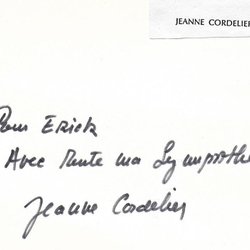 JEANNE CORDELIER
Pour Erick
Avec toute ma Sympathie
Jeanne Cordelier